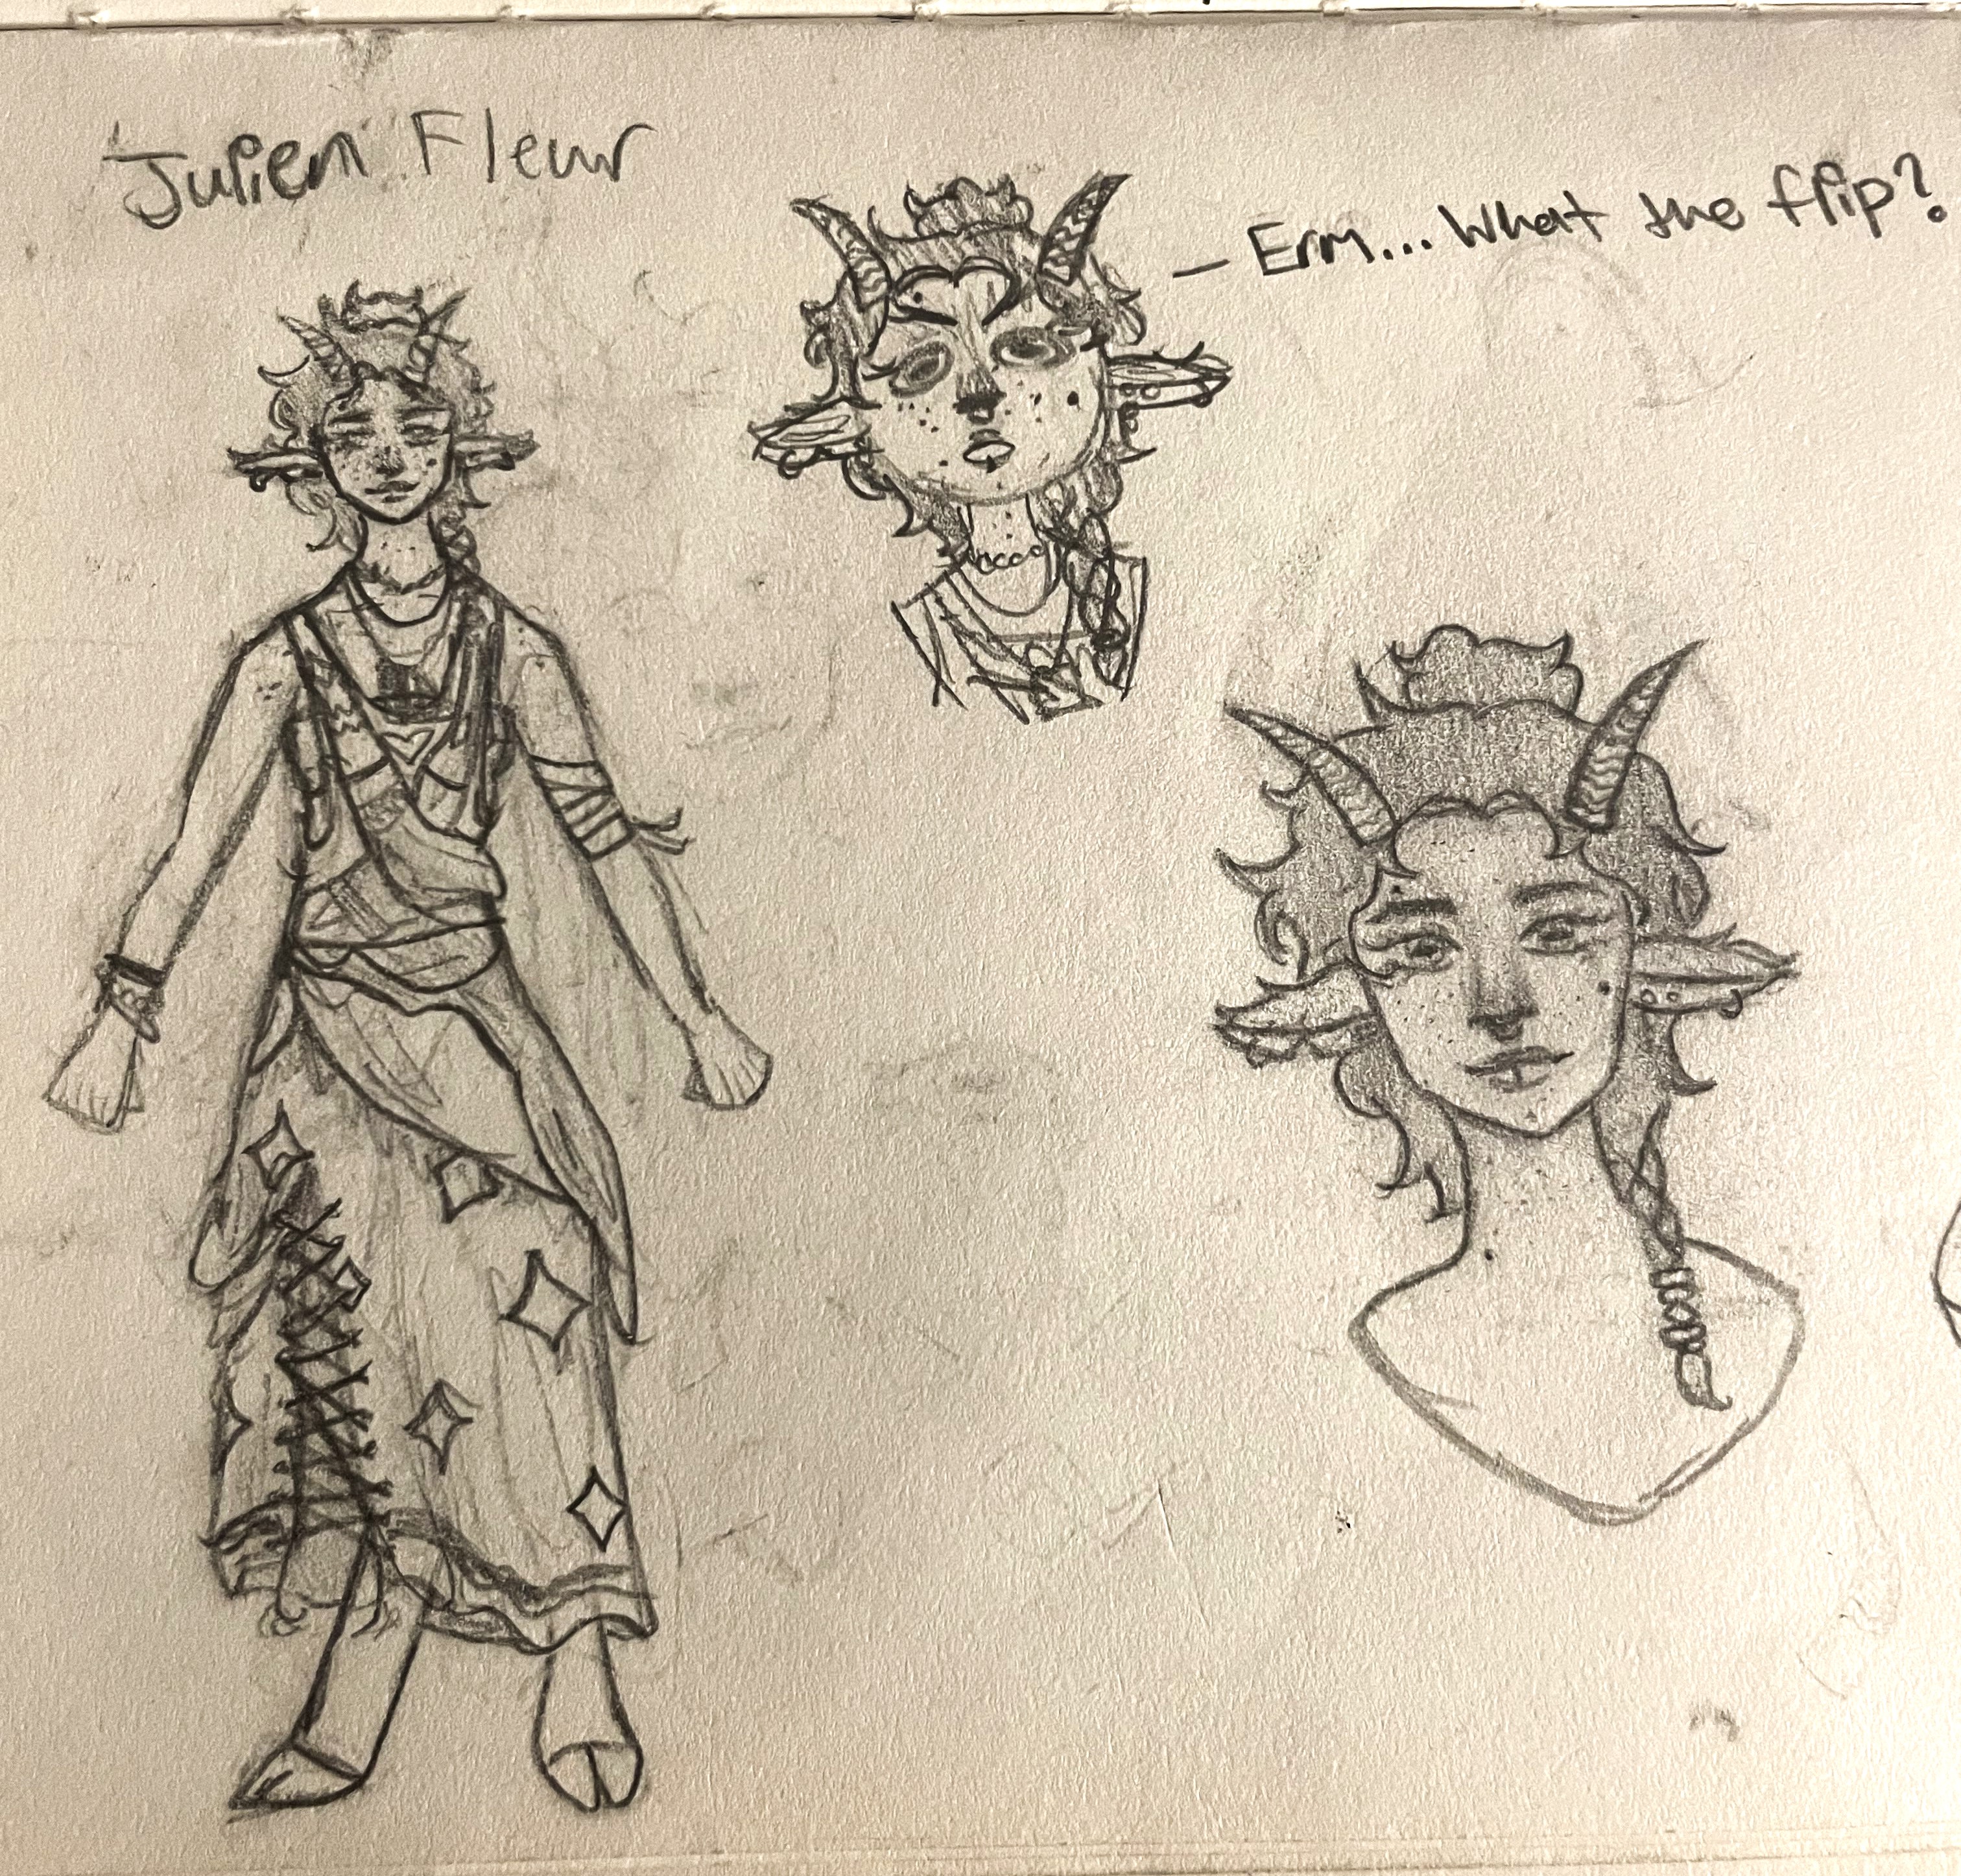 Julien Fleur
— Erm... What the flip?